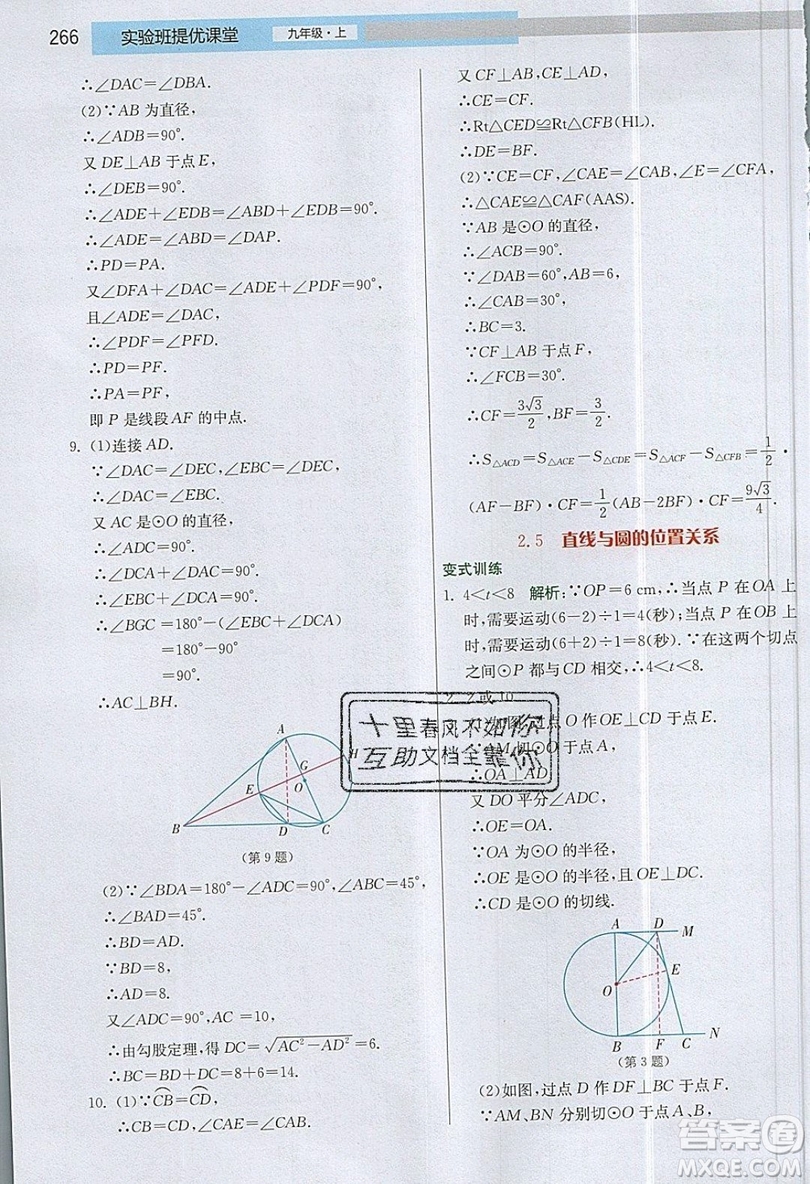 266 实验班提优课堂 九年级·上
∴∠DAC=∠DBA.
(2)∵AB 为直径，
∴∠ADB=90°.
又 DE⊥AB 于点 E，
∴∠DEB=90°.
∴∠ADE+∠EDB=∠ABD+∠EDB=90°.
∴∠ADE=∠ABD=∠DAP.
∴PD=PA.
又∠DFA+∠DAC=∠ADE+∠PDF=90°，
且∠ADE=∠DAC，
∴∠PDF=∠PFD.
∴PD=PF.
∴PA=PF，
即 P 是线段 AF 的中点.
9. (1)连接 AD.
∵∠DAC=∠DEC,∠EBC=∠DEC，
∴∠DAC=∠EBC.
又 AC 是⊙O 的直径，
∴∠ADC=90°.
∴∠DCA+∠DAC=90°.
∴∠EBC+∠DCA=90°.
∴∠BGC=180°-(∠EBC+∠DCA)
=180°-90°
=90°.
∴AC⊥BH.
A
G
H
E
O
B
D
C
(第 9 题)
(2)∵∠BDA=180°-∠ADC=90°,∠ABC=45°，
∴∠BAD=45°.
∴BD=AD.
∵BD=8，
∴AD=8.
又∠ADC=90°，AC=10，
∴由勾股定理，得 DC=√(AC²-AD²)=6.
∴BC=BD+DC=8+6=14.
10. (1)∵⌒CB=⌒CD，
∴CB=CD,∠CAE=∠CAB.
又 CF⊥AB,CE⊥AD，
∴CE=CF.
∴Rt△CED≌Rt△CFB(HL).
∴DE=BF.
(2)∵CE=CF,∠CAE=∠CAF,∠CEA=∠CFA，
∴△CAE≌△CAF(AAS).
∵AB 是⊙O 的直径，
∴∠ACB=90°.
∵∠DAB=60°,AB=6，
∴∠CAB=30°，
∴BC=3.
∵CF⊥AB 于点 F，
∴∠FCB=30°.
∴CF=3√3/2,BF=3/2.
∴S△ACD=S△ACE-S△CDE=S△ACF-S△CFB=1/2·
(AF-BF)·CF=1/2(AB-2BF)·CF=9√3/4.
2.5 直线与圆的位置关系
变式训练
1. 4<t<8 解析:∵OP=6 cm,∴当点 P 在 OA 上
时,需要运动(6-2)÷1=4(秒);当点 P 在 OB 上
时,需要运动(6+2)÷1=8(秒).∵在这两个切点
之间⊙P 都与 CD 相交,∴4<t<8.
2. 2或10
如图,过点 O 作 OE⊥CD 于点 E.
∵AM 切⊙O 于点 A，
∴OA⊥AD.
又 DO 平分∠ADC，
∴OE=OA.
∵OA 为⊙O 的半径，
∴OE 是⊙O 的半径,且 OE⊥DC.
∴CD 是⊙O 的切线.
A
D
M
E
O
B
F
C
N
(第 3 题)
(2)如图,过点 D 作 DF⊥BC 于点 F.
∵AM、BN 分别切⊙O 于点 A、B，
十里春风不如你
互助文档全靠你
答案圈
MXQE.COM